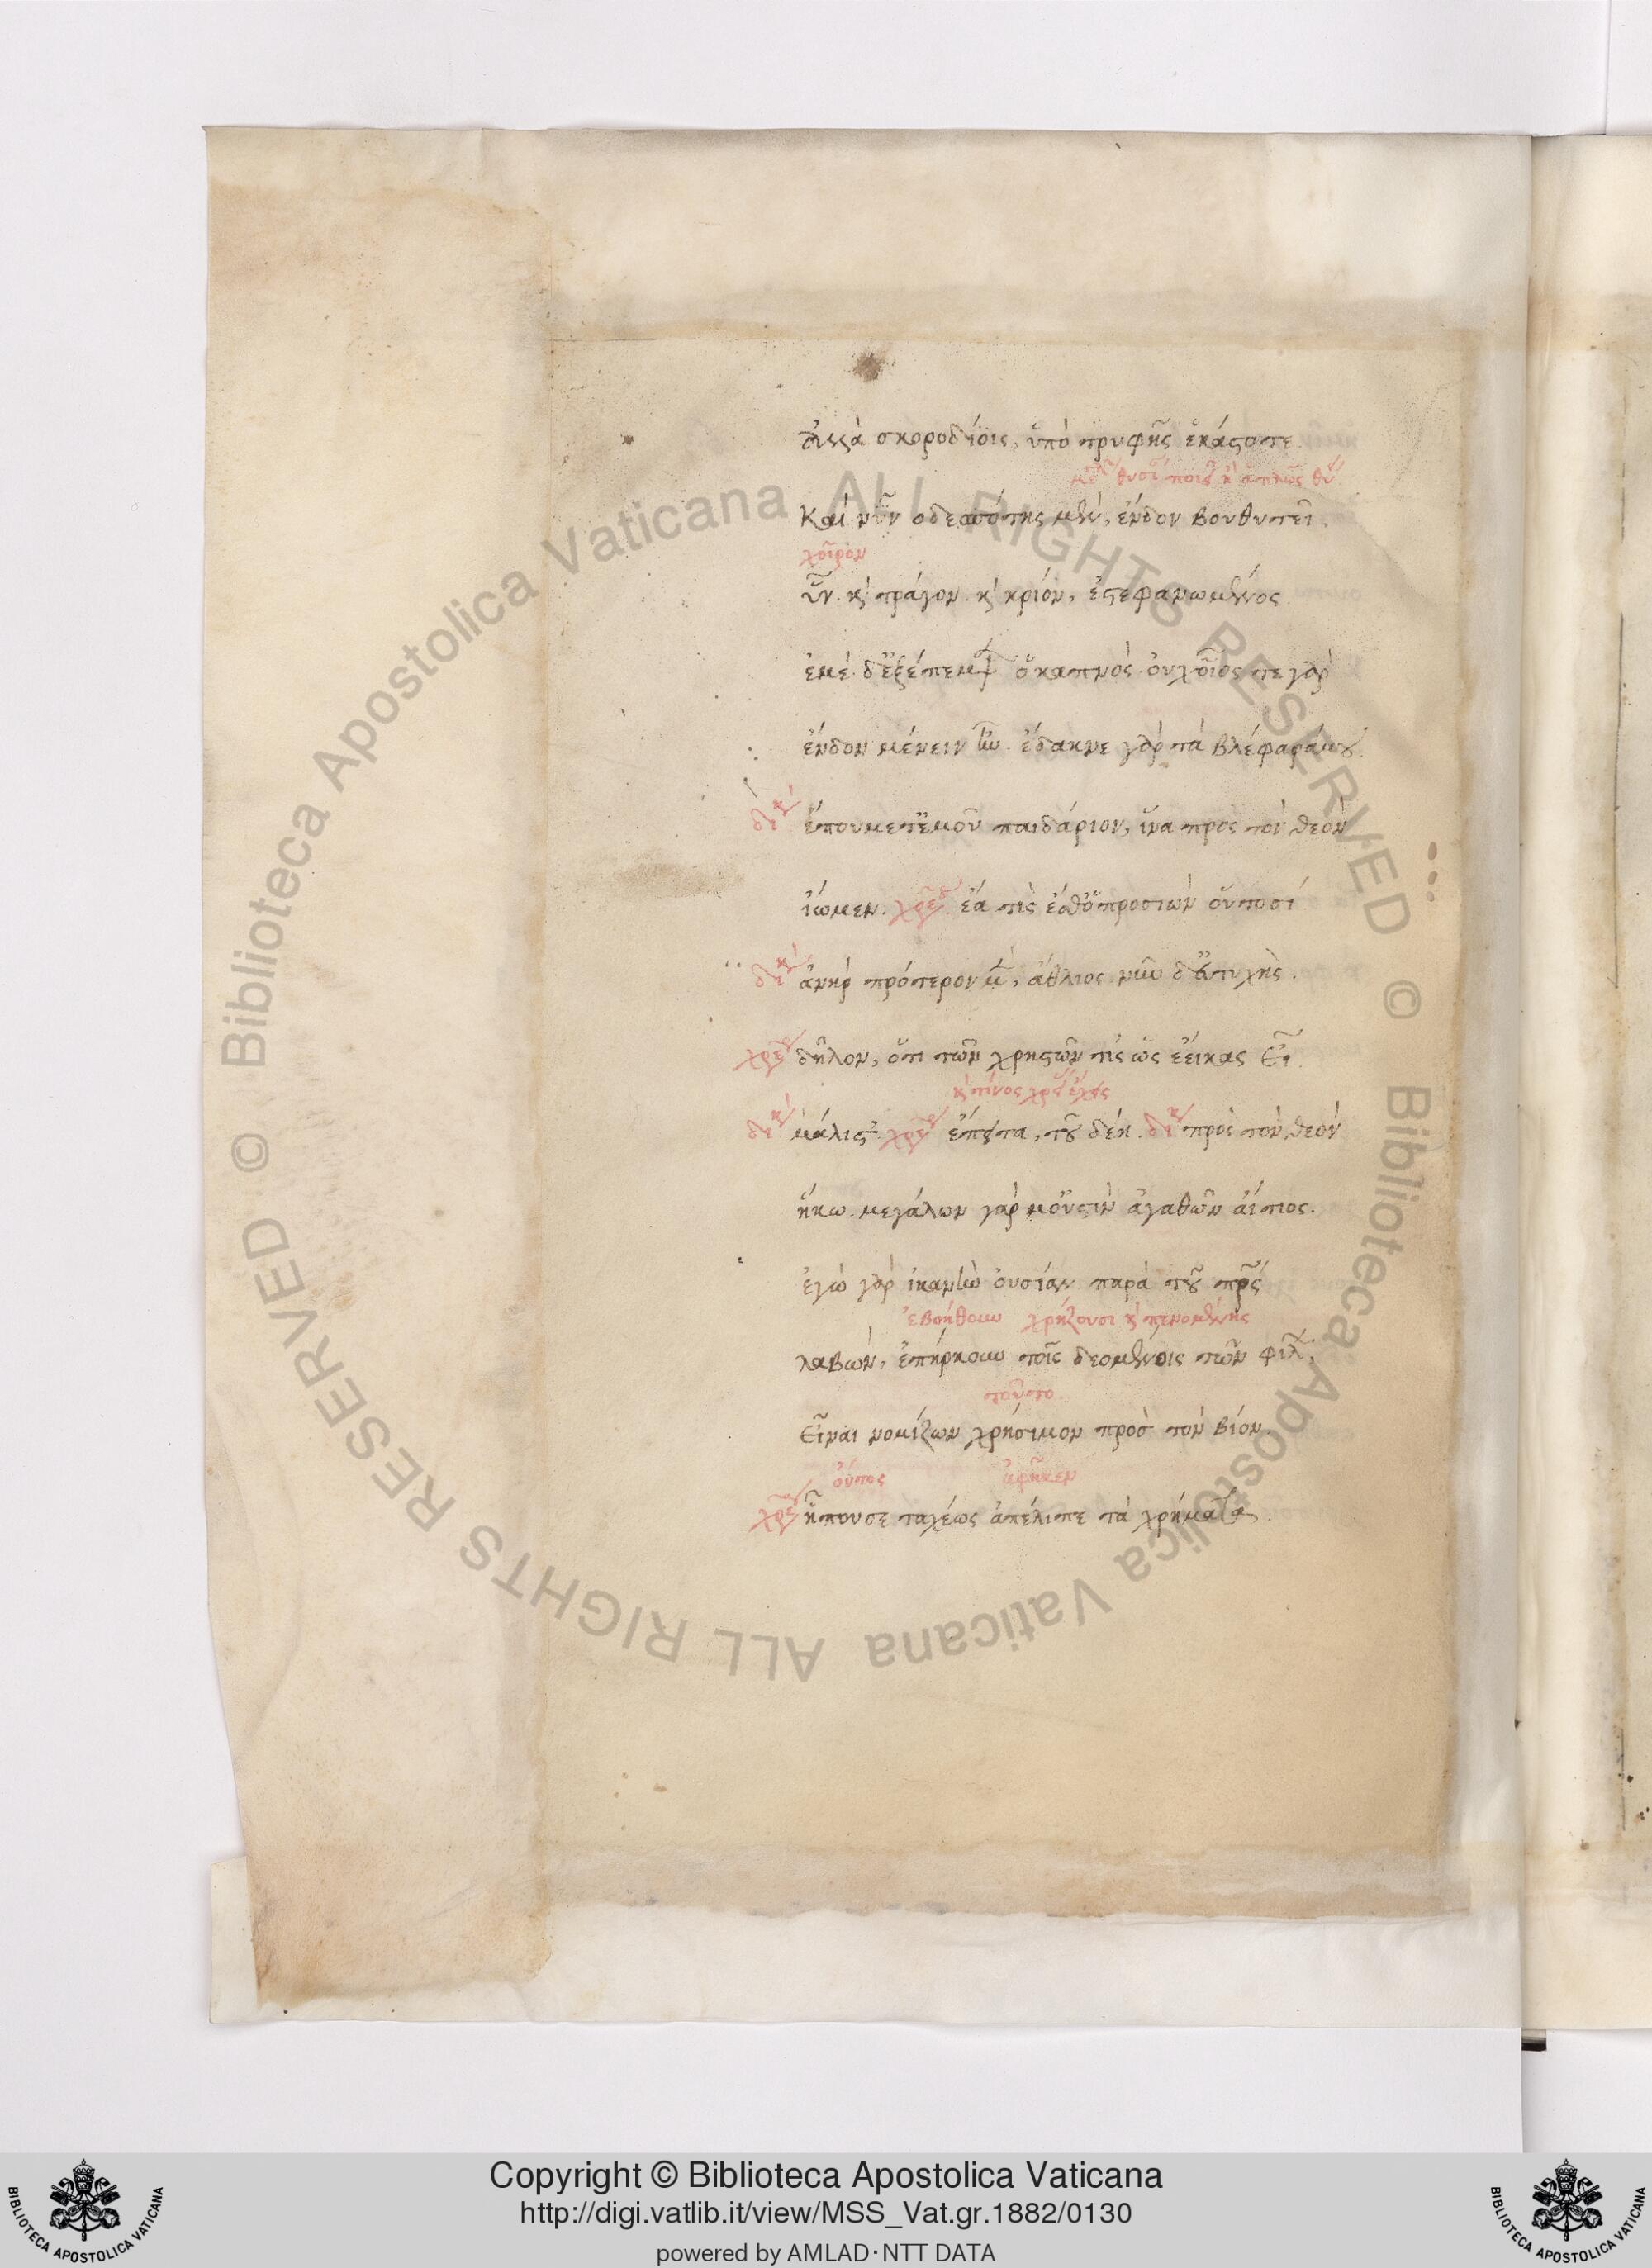 ἀλλὰ σκοροδίοις, ὑπὸ τρυφῆς ἑκάστοτε
καὶ νῦν ὁ δεσπότης μὲν, ἔνδον βουθυτεῖ
χοῖρον
ὗν κ̀ τράγον κ̀ κριόν, ἐστεφανωμένος
ἐμὲ δ' ἐξέπεμψ ὁ καπνὸς οὐχ οἷός τε γὰρ
ἔνδον μένειν ἦν ἔδακνε γὰρ τὰ βλέφαρά μου
δικ ἕπου μετ' ἐμοῦ παιδάριον, ἵνα πρὸς τὸν θεὸν
ἴωμεν. χρε ἔα τίς ἐσθ' ὁ προσιὼν οὑτοσί
δικ ἀνὴρ πρότερον μ, ἄθλιος νῦν δ' εὐτυχὴς.
χρε δῆλον, ὅτι τῶν χρηστῶν τίς ὡς ἔοικας εἶ
κ̀ τίνος χρείαν ἔχεις
δικ μάλιστ. χρε ἔπειτα, τοῦ δέῃ. δικ πρὸς τὸν θεὸν
ἥκω. μεγάλων γάρ μοὐστὶν ἀγαθῶν αἴτιος.
ἐγὼ γὰρ ἱκανὴν οὐσίαν παρὰ τοῦ πρς
ἐβοήθουν χρήζουσι κ̀ πενομένοις
λαβὼν, ἐπήρκουν τοῖς δεομένοις τῶν φίλ,
τοῦτο
εἶναι νομίζων χρήσιμον πρὸσ τὸν βίον.
ὄντως ἀφῆκεν
χρε ἦπου σε ταχέως ἀπέλιπε τὰ χρήματα.
Biblioteca Apostolica Vaticana ALL RIGHTS RESERVED © Biblioteca Apostolica Vaticana ALL RIGHTS RESERVED ©
BIBLIOTECA APOSTOLICA VATICANA
Copyright © Biblioteca Apostolica Vaticana
http://digi.vatlib.it/view/MSS_Vat.gr.1882/0130
powered by AMLAD·NTT DATA
BIBLIOTECA APOSTOLICA VATICANA